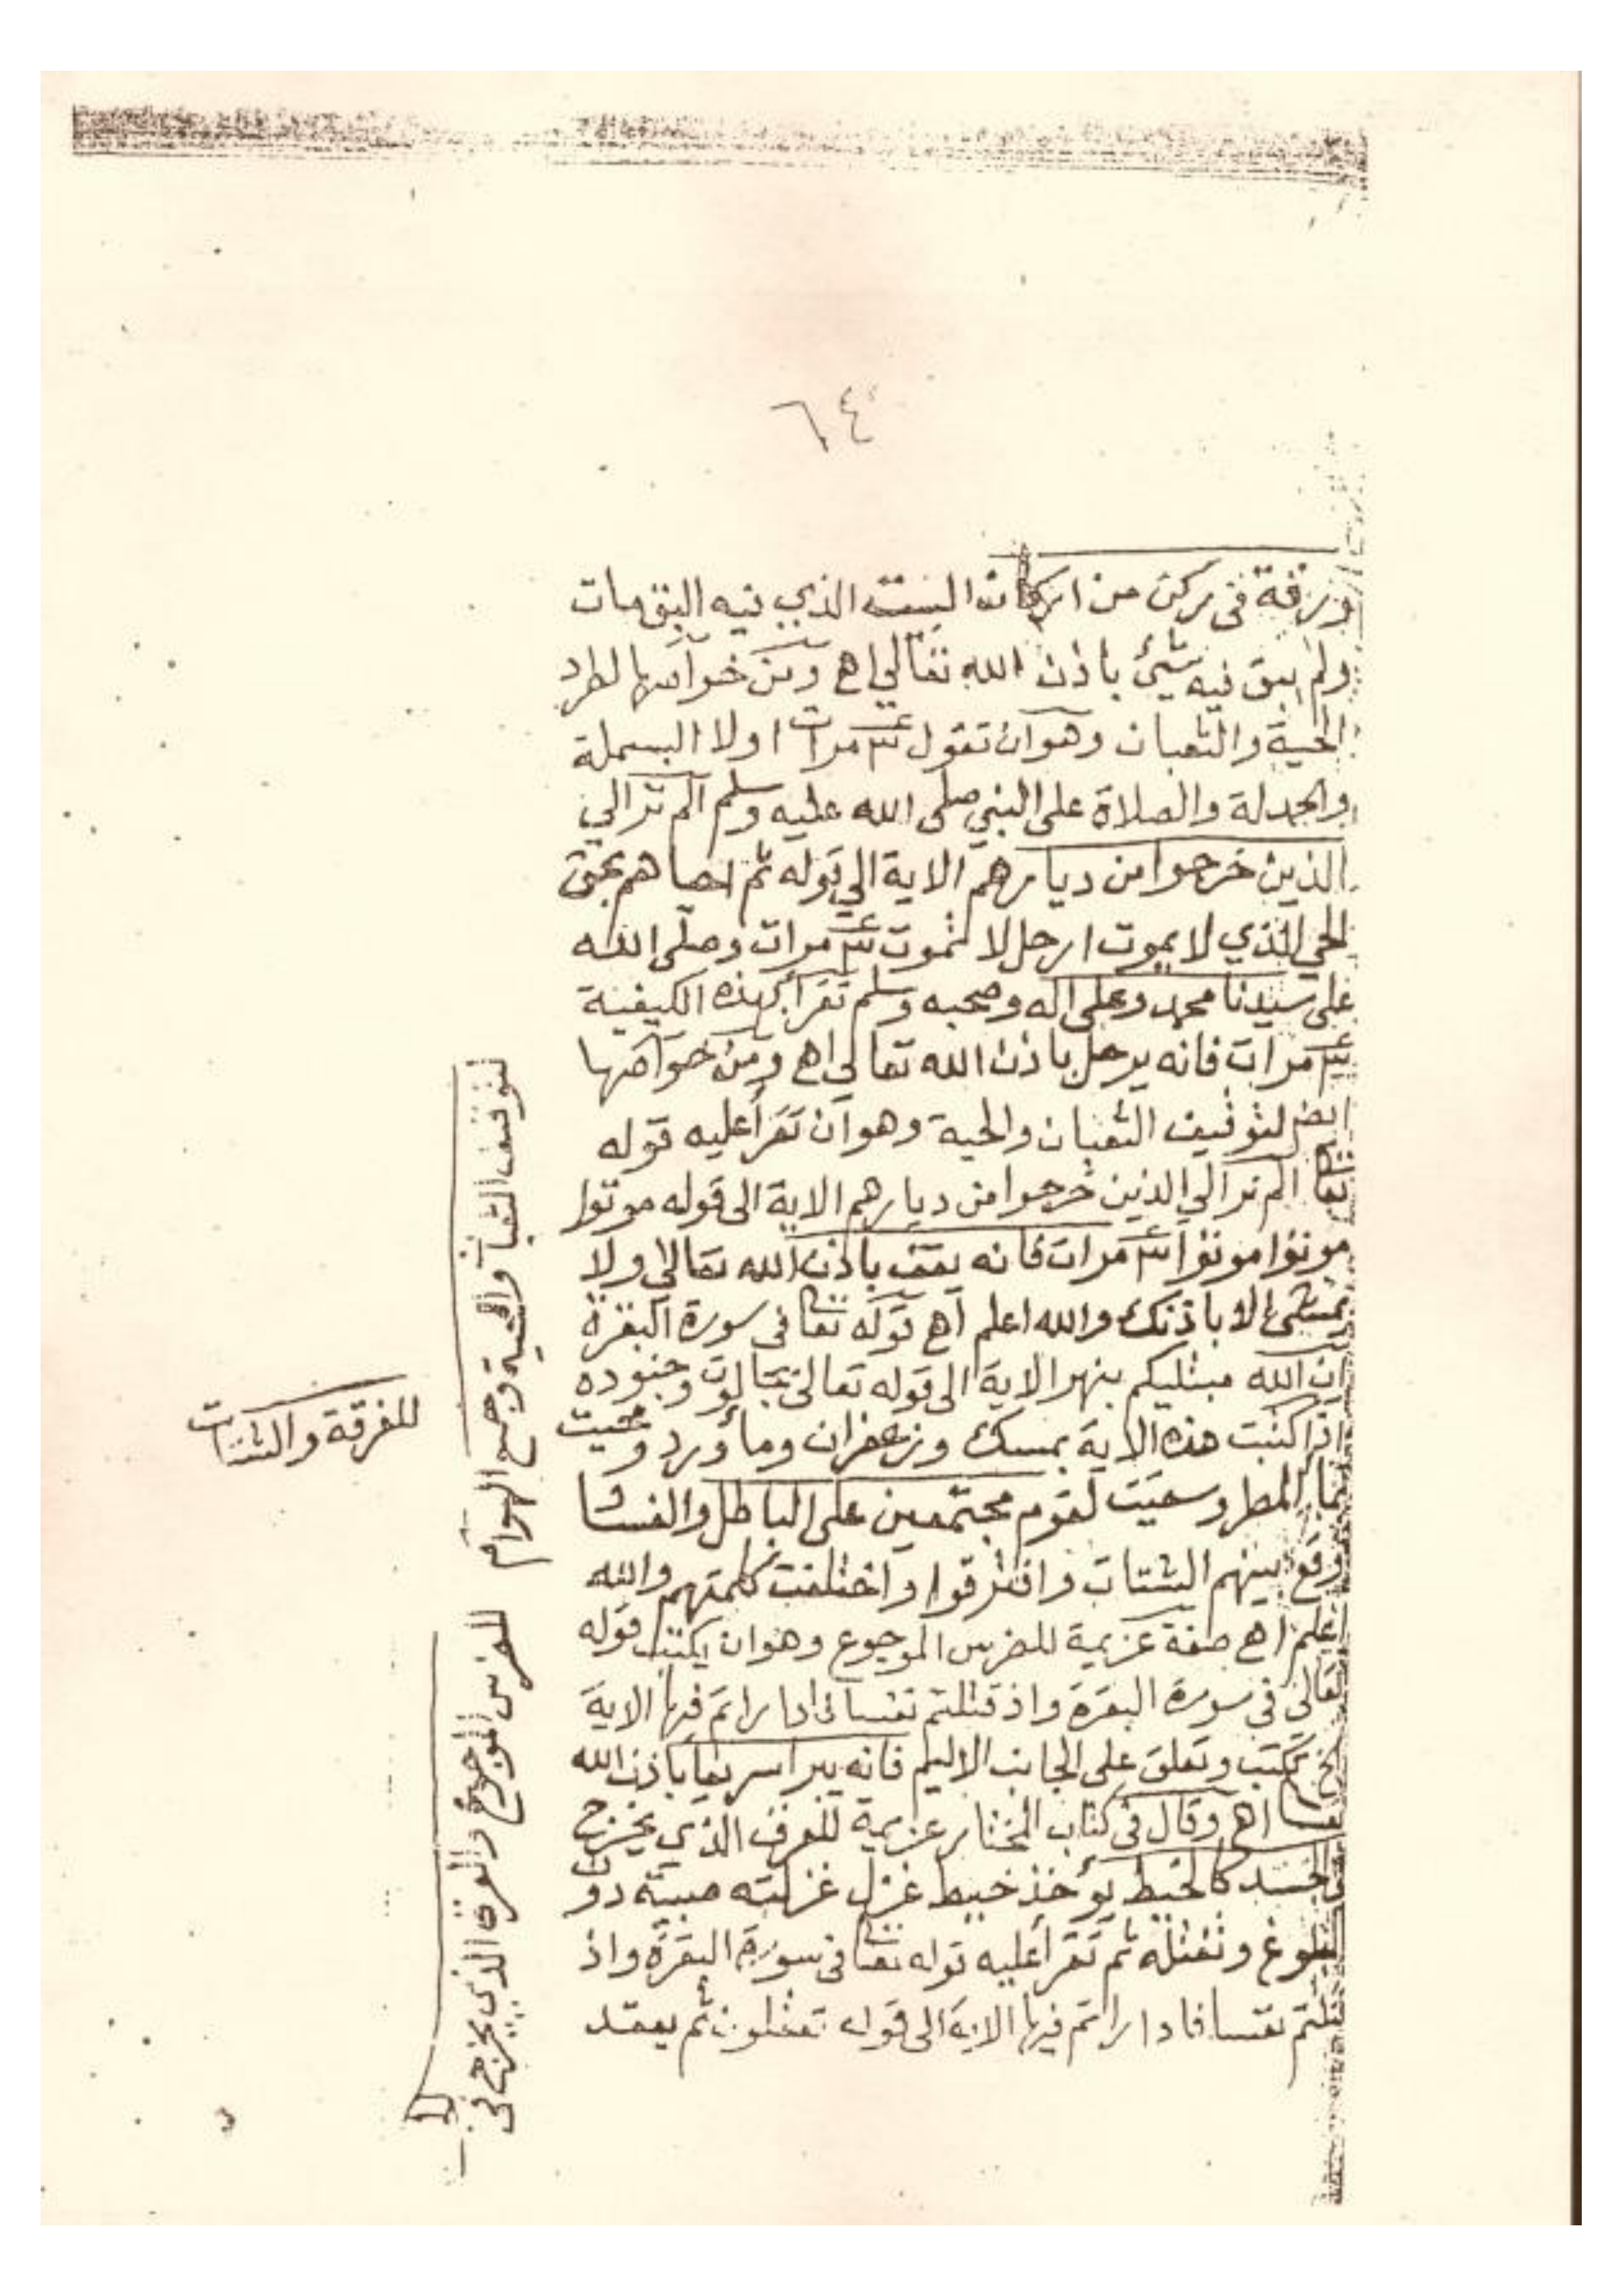 ٦٤
ورقة في ركن من اركان البيت الذي فيه البق مات
ولم يبق فيه شيئ باذن الله تعالى اهـ ومن خواصها لطرد
الحية والثعبان وهو ان تقول مرات اولا البسملة
والحمدلة والصلاة على النبي صلى الله عليه وسلم الم تر الي
الذين خرجوا من ديارهم الاية الي قوله ثم احياهم بحق
الحي الذي لا يموت ارحل لا تموت مرات وصلى الله
على سيدنا محمد وعلى اله وصحبه وسلم تقرأ بهذه الكيفية
مرات فانه يرحل باذن الله تعالي اهـ ومن خواصها
ايضا لتوقيف الثعبان والحية وهو ان تقرأ عليه قوله
تعا الم تر الي الذين خرجوا من ديارهم الاية الى قوله موتوا
موتوا موتوا مرات فانه يقف باذن الله تعالى ولا
يمشي الا باذنك والله اعلم اهـ قوله تعا في سورة البقرة
ان الله مبتليكم بنهر الاية الى قوله تعالى بجالوت وجنوده
اذا كتبت هذه الاية بمسك وزعفران وماورد ومحيت
بما المطر وسقيت لقوم مجتمعين على الباطل والفسا
وقع بينهم الشتات وافترقوا واختلفت كلمتهم والله
اعلم اهـ صفة عزيمة للضرس الموجوع وهو ان يكتب قوله
تعالى في سورة البقرة واذ قتلتم نفسا فادارأتم فيها الاية
تكتب وتعلق على الجانب الاليم فانه يبرا سريعا باذن الله
تعا اهـ وقال في كتاب المختار عزيمة للعرق الذي يخرج
الجسد كالخيط يؤخذ خيط غزل غزلته صبية دون
البلوغ وتفتله ثم تقرأ عليه قوله تعا في سورة البقرة واذ
قتلتم نفسا فادارأتم فيها الاية الى قوله تعقلون ثم يعقد
لتوقيف الثعبان والحية وجميع الهوام
للفرقة والشتات
للضرس الموجوع والعرق الذي يخرج في